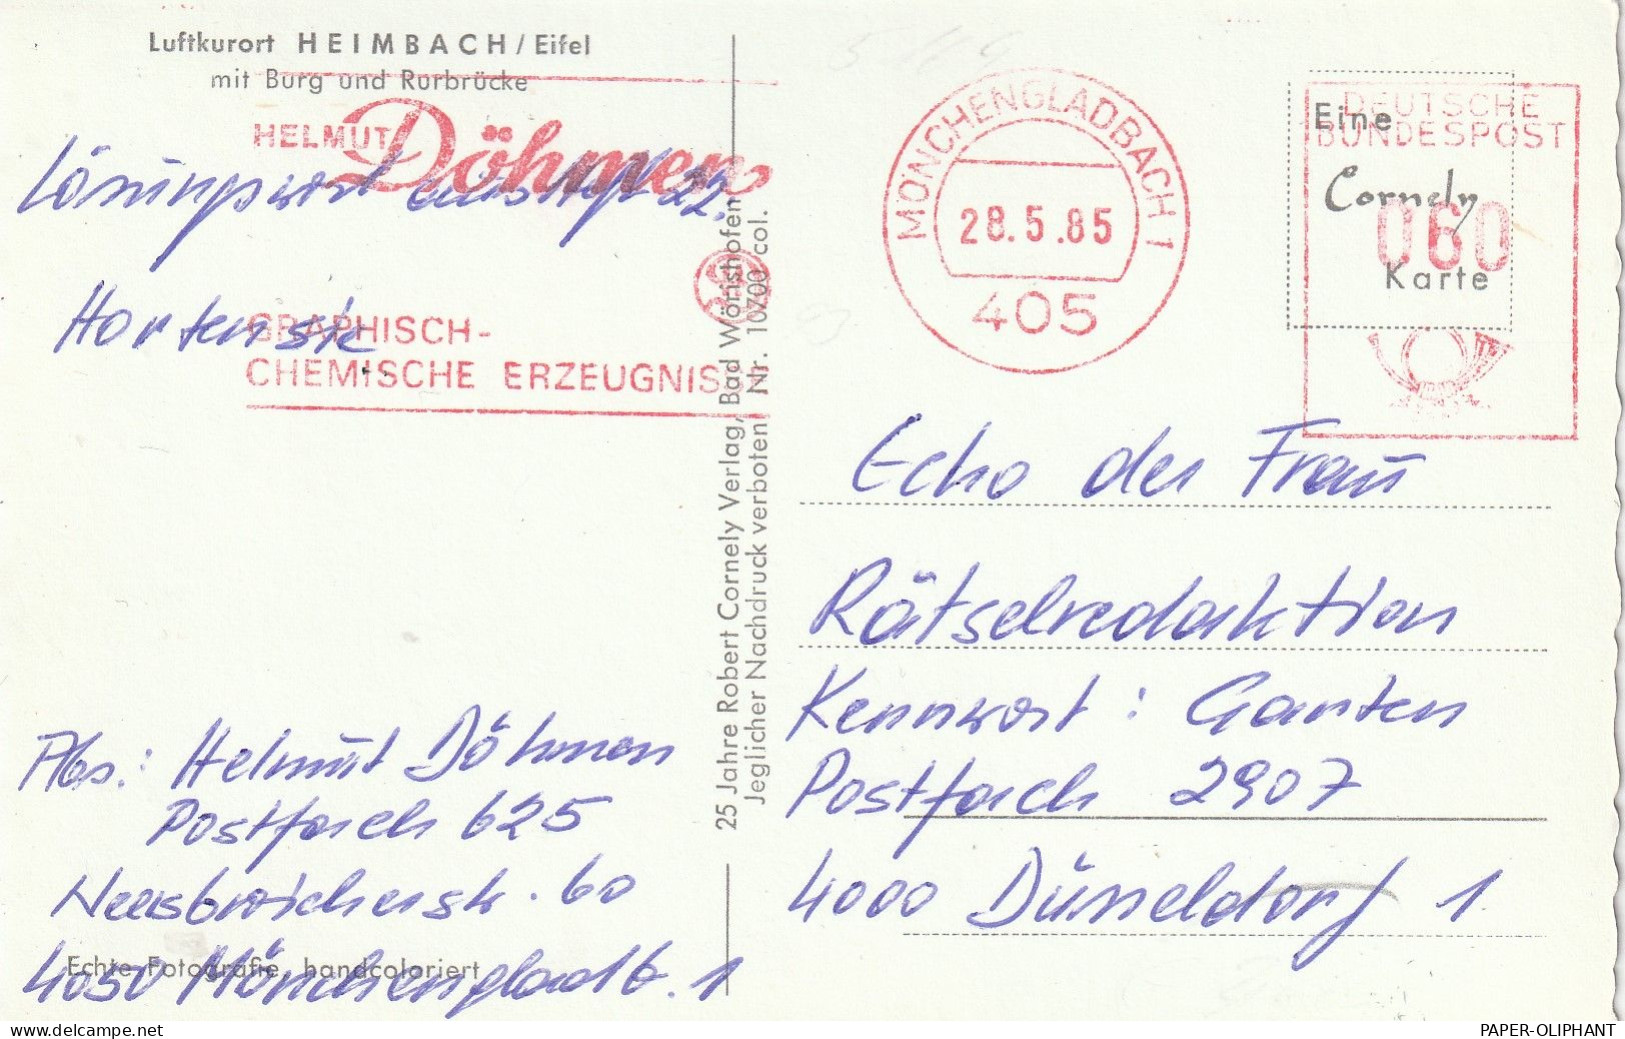 Luftkurort HEIMBACH/Eifel
mit Burg und Rurbrücke
HELMUT Döhmen
Lösungswort aus Heft 22.
Hortensie
GRAPHISCH-
CHEMISCHE ERZEUGNISSE
Abs.: Helmut Döhmen
Postfach 625
4050 Mönchengladb. 1
Echte Fotografie, handcoloriert
25 Jahre Robert Cornely Verlag, Bad Wörishofen
Jeglicher Nachdruck verboten Nr. 10700 col.
MÖNCHENGLADBACH 1
28.5.85
405
DEUTSCHE
BUNDESPOST
060
Eine
Cornely
Karte
Echo der Frau
Rätselredaktion
Kennwort: Garten
Postfach 2907
4000 Düsseldorf 1
PAPER-OLIPHANT
www.delcampe.net